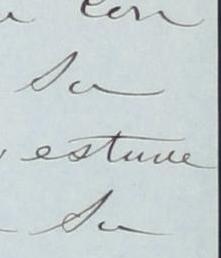 con
Su
estuve
Su